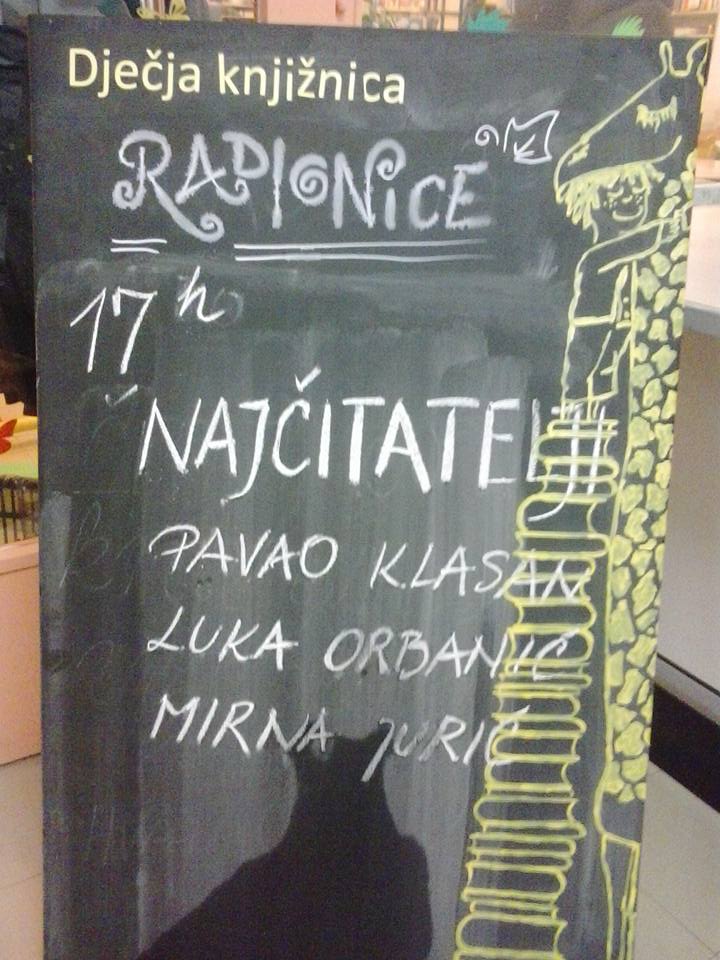 Dječja knjižnica
RADIONiCE
17 h
NAJČITATELJI
PAVAO KLASAN
LUKA ORBANIĆ
MIRNA JURIĆ